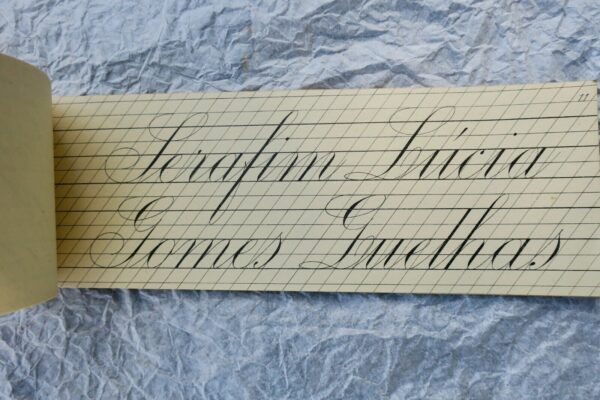 11
Serafim Lúcia
Gomes Quelhas